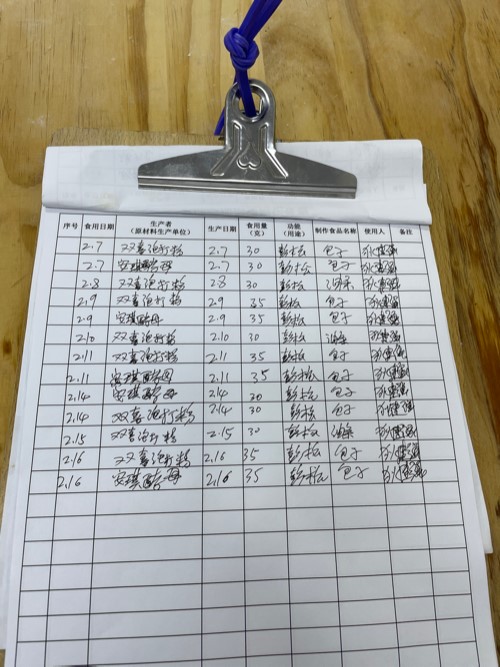 序号 食用日期 生产者（原材料生产单位） 生产日期 食用量（克） 功能（用途） 制作食品名称 使用人 备注
2.7 双喜泡打粉 2.7 30 彭松 包子
2.7 安琪酵母 2.7 30 彭松 包子
2.8 双喜泡打粉 2.8 30 彭松 油条
2.9 双喜泡打粉 2.9 35 彭松 包子
2.9 安琪酵母 2.9 35 彭松 包子
2.10 双喜泡打粉 2.10 30 彭松 油条
2.11 双喜泡打粉 2.11 35 彭松 包子
2.11 安琪酵母 2.11 35 彭松 包子
2.14 安琪酵母 2.14 30 彭松 包子
2.14 双喜泡打粉 2.14 30 彭松 包子
2.15 双喜泡打粉 2.15 30 彭松 油条
2.16 双喜泡打粉 2.16 35 彭松 包子
2.16 安琪酵母 2.16 35 彭松 包子